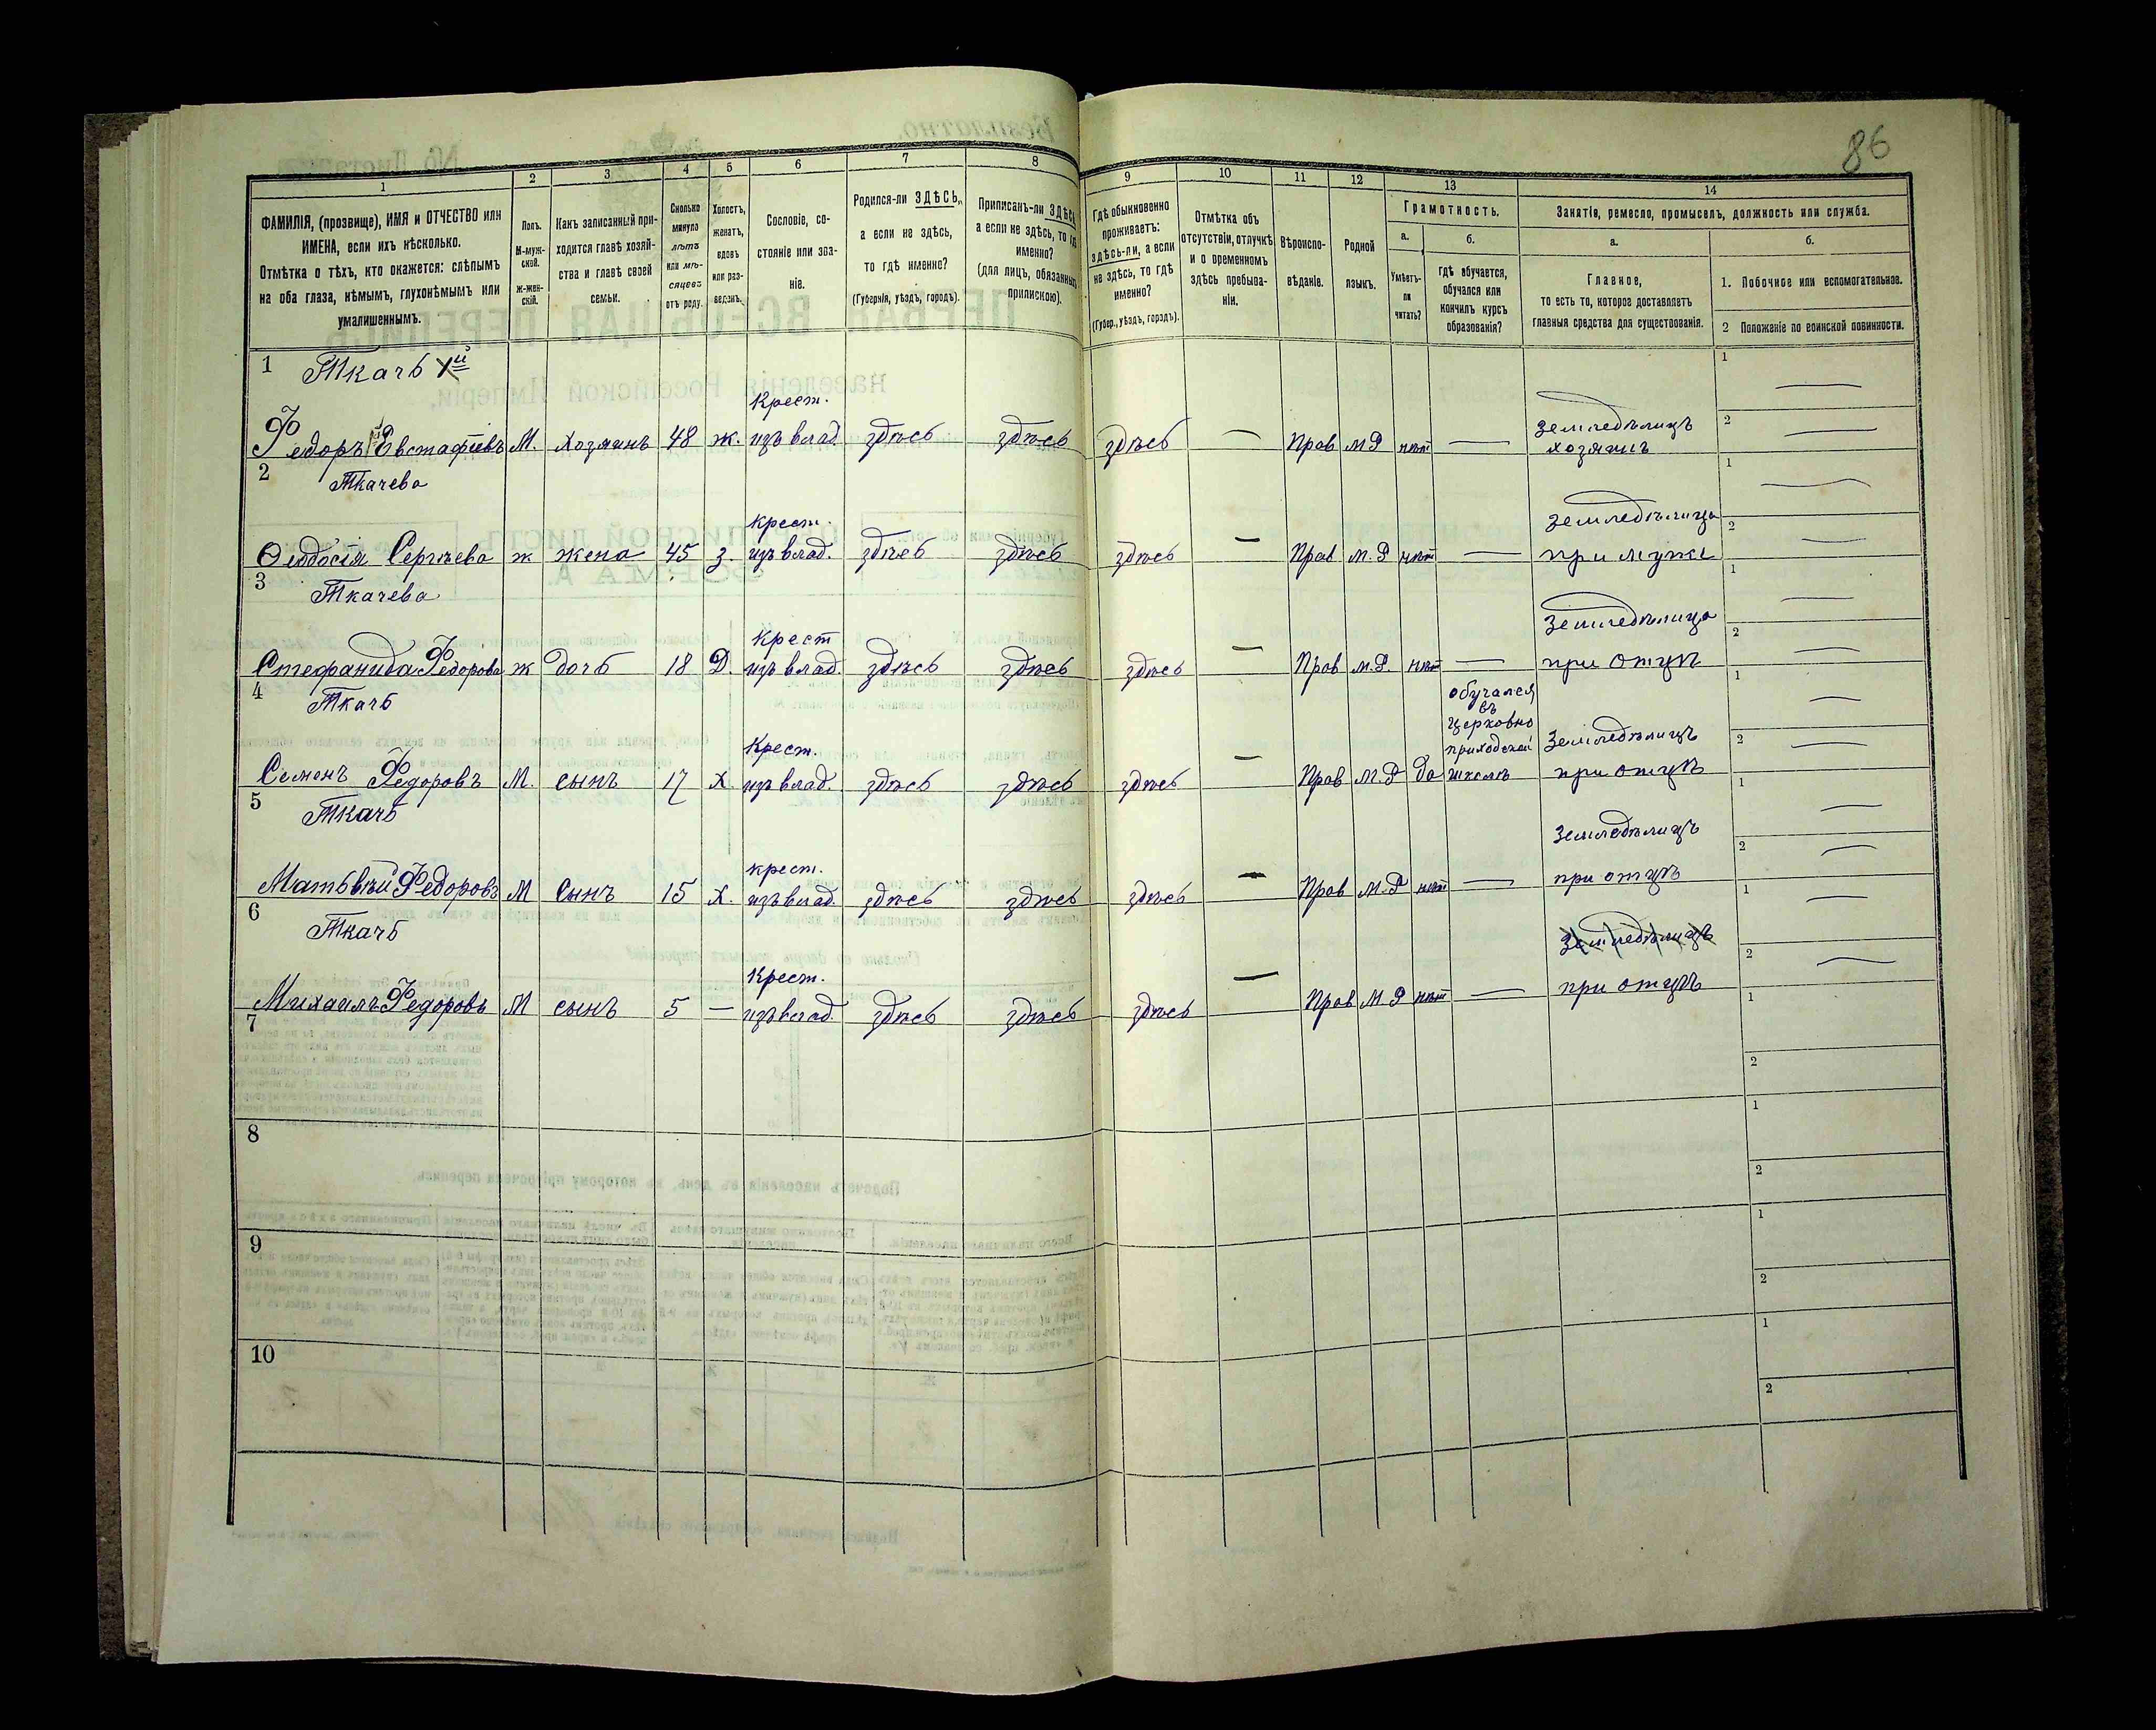 86
1 2 3 4 5 6 7 8 9 10 11 12 13 14
ФАМИЛІЯ, (прозвище), ИМЯ и ОТЧЕСТВО или
ИМЕНА, если ихъ нѣсколько.
Отмѣтка о тѣхъ, кто окажется: слѣпымъ
на оба глаза, нѣмымъ, глухонѣмымъ или
умалишеннымъ.
Полъ.
М-муж-
ской.
Ж-жен-
скій.
Какъ записанный при-
ходится главѣ хозяй-
ства и главѣ своей
семьи.
Сколько
минуло
лѣтъ
или мѣ-
сяцевъ
отъ роду.
Холостъ,
женатъ,
вдовъ
или раз-
веденъ.
Сословіе, со-
стояніе или зва-
ніе.
Родился-ли ЗДѢСЬ,
а если не здѣсь,
то гдѣ именно?
(Губернія, уѣздъ, городъ).
Приписанъ-ли ЗДѢСЬ,
а если не здѣсь, то гдѣ
именно?
(для лицъ, обязанныхъ
припискою).
Гдѣ обыкновенно
проживаетъ:
здѣсь-ли, а если
не здѣсь, то гдѣ
именно?
(Губер., уѣздъ, городъ).
Отмѣтка объ
отсутствіи, отлучкѣ
и о временномъ
здѣсь пребыва-
ніи.
Вѣроиспо-
вѣданіе.
Родной
языкъ.
Грамотность.
а.
Умѣетъ-
ли
читать?
б.
гдѣ обучается,
обучался или
кончилъ курсъ
образованія?
Занятіе, ремесло, промыселъ, должность или служба.
а.
Главное,
то есть то, которое доставляетъ
главныя средства для существованія.
б.
1. Побочное или вспомогательное.
2 Положеніе по воинской повинности.
1 Ткачь
Крест. Земледѣлицъ
Федоръ Евстафіевъ М. хозяинъ 48 ж. изъ влад здѣсь здѣсь здѣсь — Прав м Р нѣт — хозяинъ
2 Ткачева
крест. Земледѣлица
Феодосія Сергѣева ж жена 45 з. изъ влад. здѣсь здѣсь здѣсь — Прав м. Р нѣт — при мужѣ
3 Ткачева
Крест Земледѣлица
Стефанида Федорова ж дочь 18 Д. изъ влад. здѣсь здѣсь здѣсь — Прав м. Р. нѣт — при отцѣ
4 Ткачь
обучался
въ
церковно
Крест. приходской Земледѣлицъ
Семенъ Федоровъ М. сынъ 17 Х. изъ влад. здѣсь здѣсь здѣсь — Прав М. Р да школѣ при отцѣ
5 Ткачь
крест. Земледѣлицъ
Матьвѣй Федоровъ М сынъ 15 Х. изъ влад. здѣсь здѣсь здѣсь — Прав М. Р нѣт — при отцѣ
6 Ткачь
Крест. Земледѣлицъ
Михаилъ Федоровъ М сынъ 5 — изъ влад. здѣсь здѣсь здѣсь — Прав М Р нѣт — при отцѣ
7
8
9
10